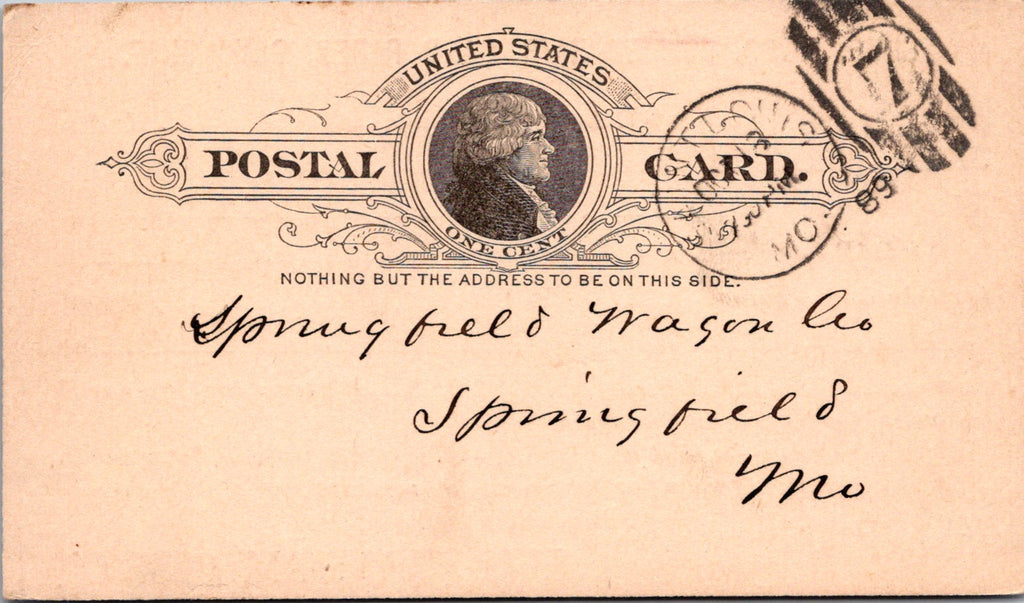 UNITED STATES
POSTAL CARD.
ONE CENT
NOTHING BUT THE ADDRESS TO BE ON THIS SIDE.
ST. LOUIS
MO.
89
7
Springfield Wagon Co
Springfield
Mo